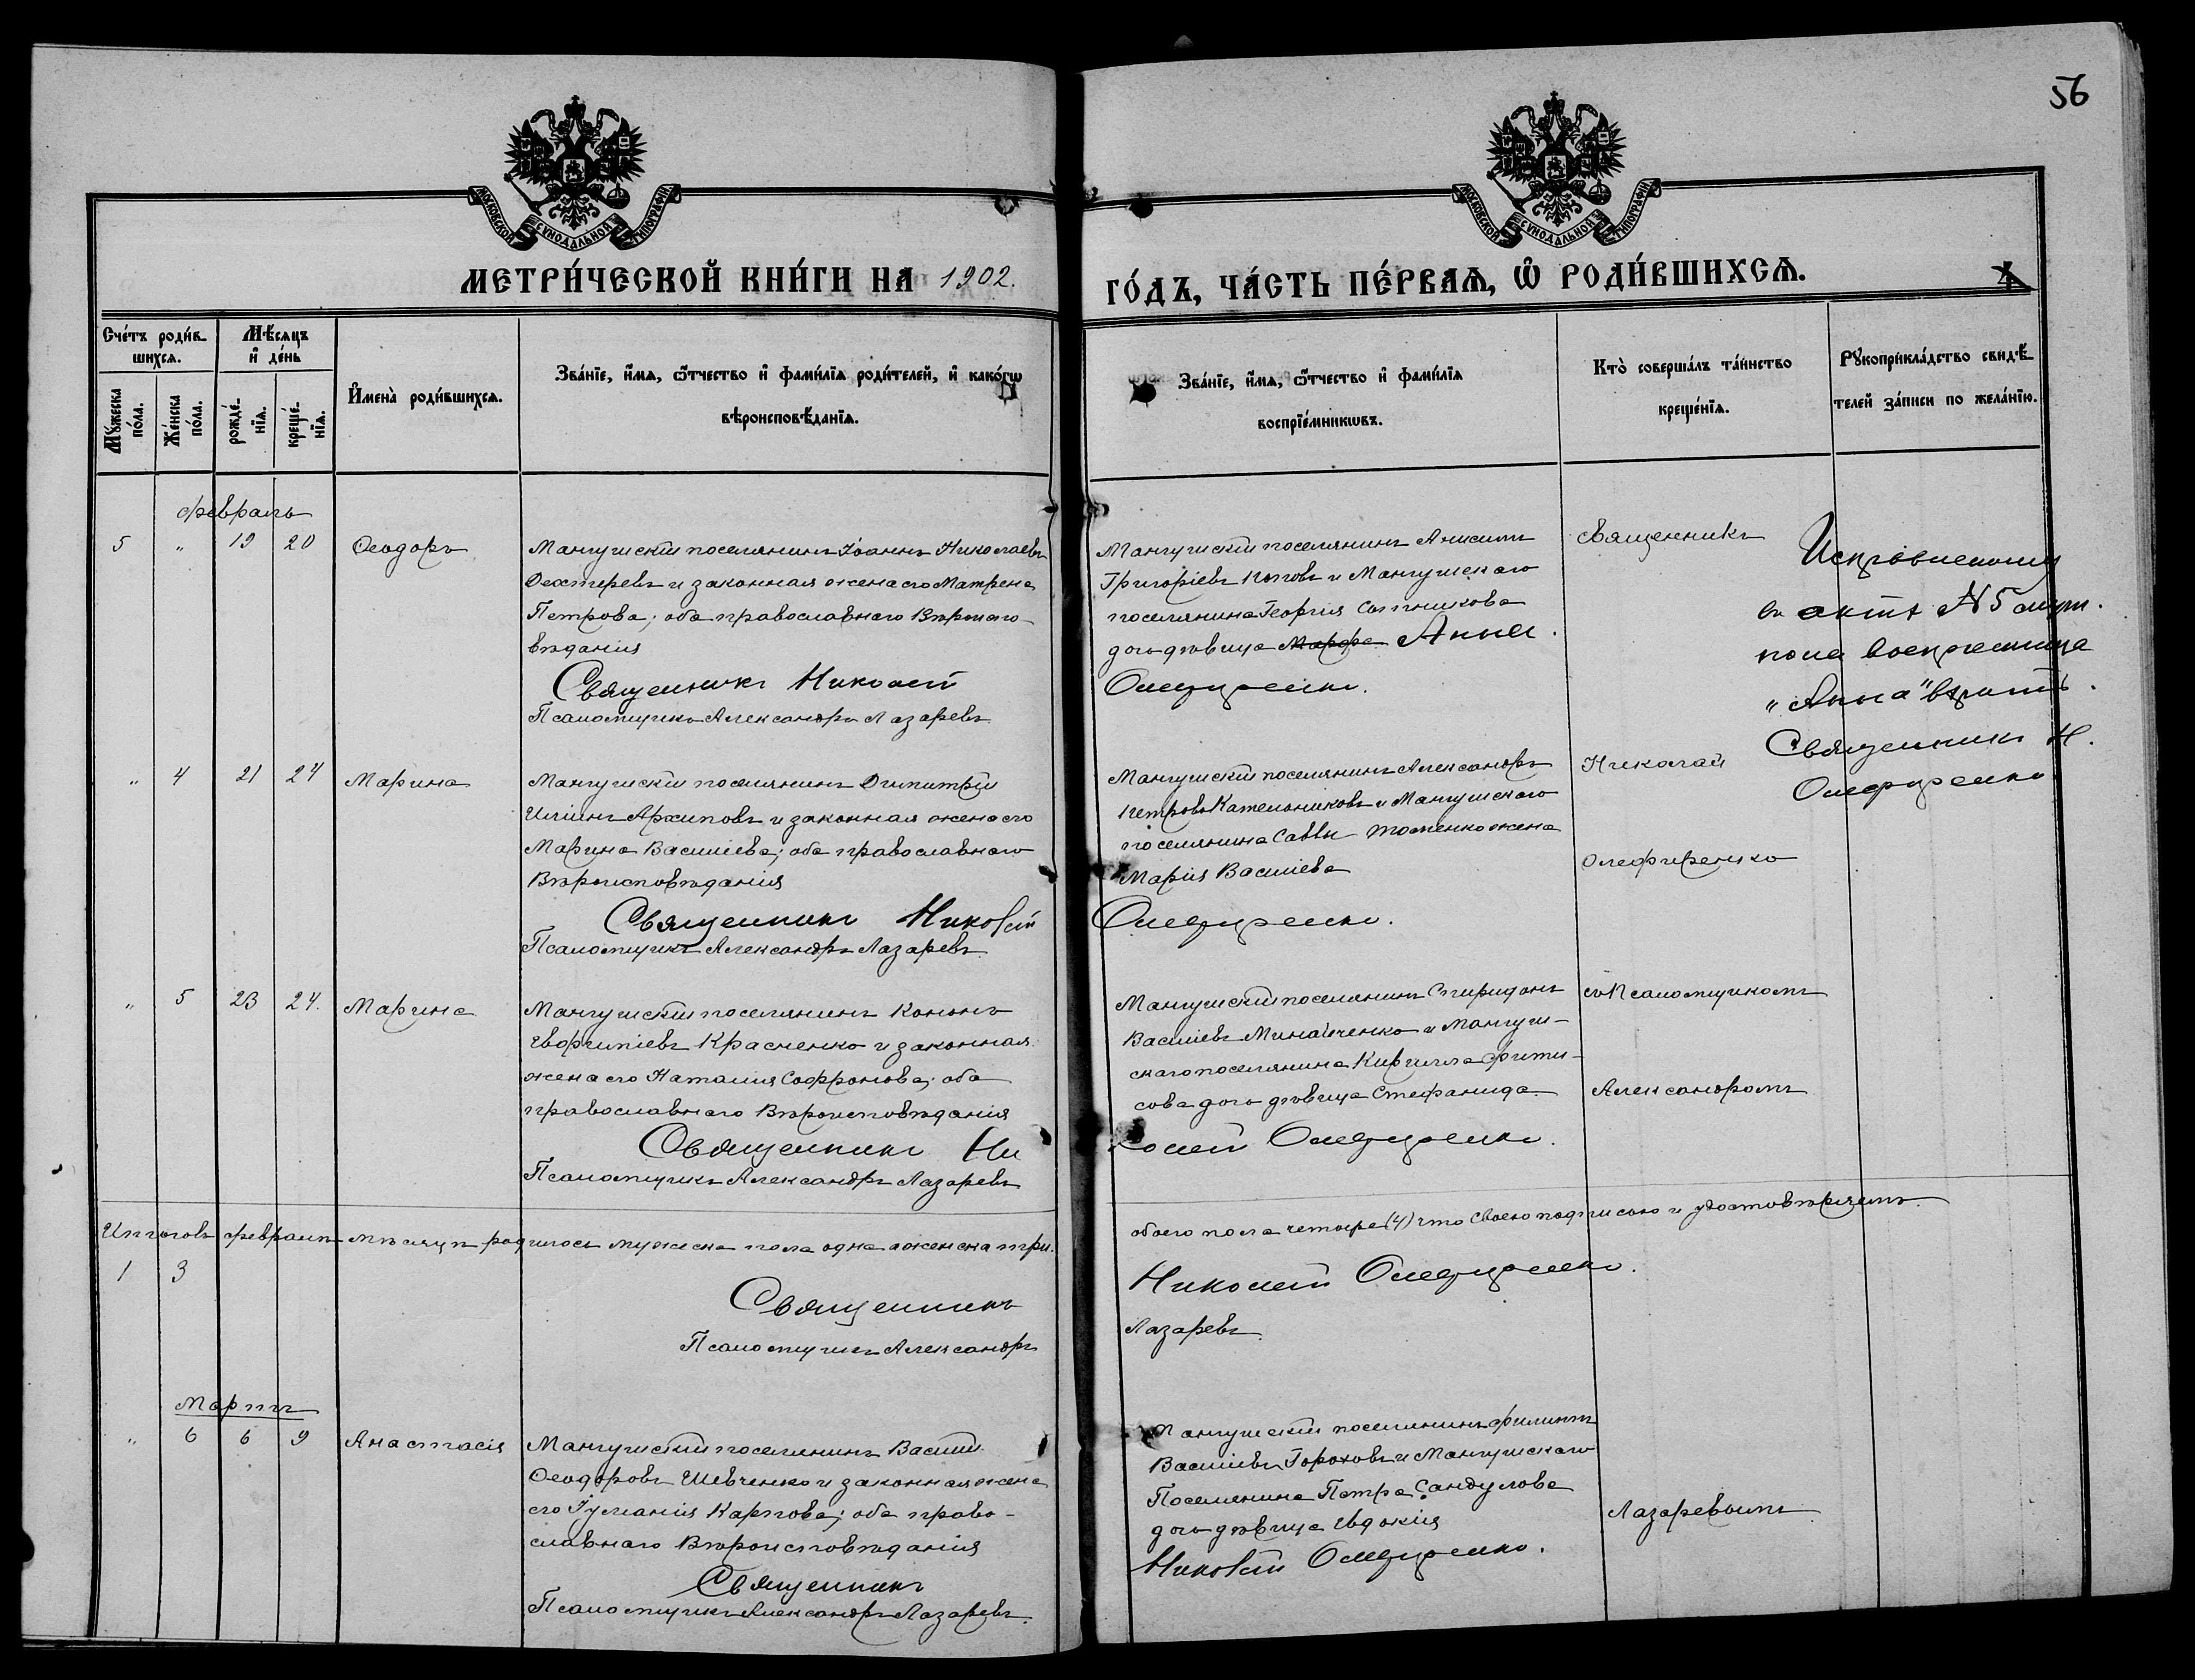 56
МОСКОВСКОЙ СУНОДАЛЬНОЙ ТИПОГРАФІИ
МОСКОВСКОЙ СУНОДАЛЬНОЙ ТИПОГРАФІИ
МЕТРИ́ЧЕСКОЙ КНИ́ГИ НА 1902.
ГО́ДЪ, ЧА́СТЬ ПЕ́РВАѦ, Ѽ РОДИ́ВШИХСѦ.
Сче́тъ роди́в-
шихсѧ.
Мѣ́сѧцъ
и҆ де́нь
Мꙋ́жеска
по́ла.
Же́нска
по́ла.
рожде́-
нїѧ.
креще́-
нїѧ.
И҆мена̀ роди́вшихсѧ.
Зва́нїе, и҆́мѧ, ѻ҆́тчество и҆ фами́лїѧ роди́телей, и҆ како́гѡ
вѣроисповѣ́данїѧ.
Зва́нїе, и҆́мѧ, ѻ҆́тчество и҆ фами́лїѧ
воспрїе́мникѡвъ.
Кто̀ соверша́лъ та́инство
креще́нїѧ.
Рꙋкоприкла́дство свидѣ́-
телей за́писи по жела́нїю.
Февраль
5 " 19 20 Ѳеодоръ
Мангушскій поселянинъ Іоаннъ Николаевъ
Дехтеревъ и законная жена его Матрена
Петрова; оба православнаго Вѣроиспо-
вѣданія
Священникъ Николай
Псаломщикъ Александръ Лазаревъ
Мангушскій поселянинъ Анисимъ
Григоріевъ и Мангушскаго
поселянина Георгія
дочь дѣвица Марфа Анна.
Олефиренко.
Священникъ
въ актѣ № 5 муж.
пола воспреемница
"Анна" вѣрить.
Священникъ Н.
Олефиренко
" 4 21 24 Марина
Мангушскій поселянинъ Димитрій
Иліинъ Архиповъ и законная жена его
Марина Василіева; оба православнаго
Вѣроисповѣданія
Священникъ Николай
Псаломщикъ Александръ Лазаревъ
Мангушскій поселянинъ Александръ
Петровъ Кательниковъ и Мангушскаго
поселянина Саввы жена
Марія Василіева
Олефиренко.
Николай
Олефиренко
" 5 23 24. Марина
Мангушскій поселянинъ Кононъ
Красненко и законная
жена его Наталія Софронова; оба
православнаго Вѣроисповѣданія
Священникъ Ни
Псаломщикъ Александръ Лазаревъ
Мангушскій поселянинъ Спиридонъ
Василіевъ Минайченко и Мангуш-
скаго поселянина Кирилла Фети-
сова дочь дѣвица Стефанида
колай Олефиренко.
съ Псаломщикомъ
Александромъ
Итого въ февралѣ мѣсяцѣ родилось мужеска пола одна а женска три.
обоего пола четыре (4) что своею подписью и удостовѣряемъ.
1 3
Священникъ
Николай Олефиренко.
Псаломщикъ Александръ
Лазаревъ
Мартъ
" 6 6 9 Анастасія
Мангушскій поселянинъ Василій
Ѳеодоровъ Шевченко и законная жена
его Іуліанія Карпова; оба право-
славнаго Вѣроисповѣданія
Священникъ
Псаломщикъ Александръ Лазаревъ
Мангушскій поселянинъ Филиппъ
Василіевъ Гороховъ и Мангушскаго
Поселянина Петра Сандулова
дочь дѣвица Евдокія
Николай Олефиренко.
Лазаревымъ